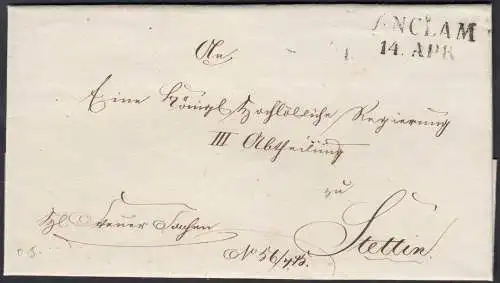 ANCLAM
14. APR
An
Eine Königl Hochlöbliche Regierung
III Abtheilung
zu
Stettin.
Steuer Sachen
No 56/